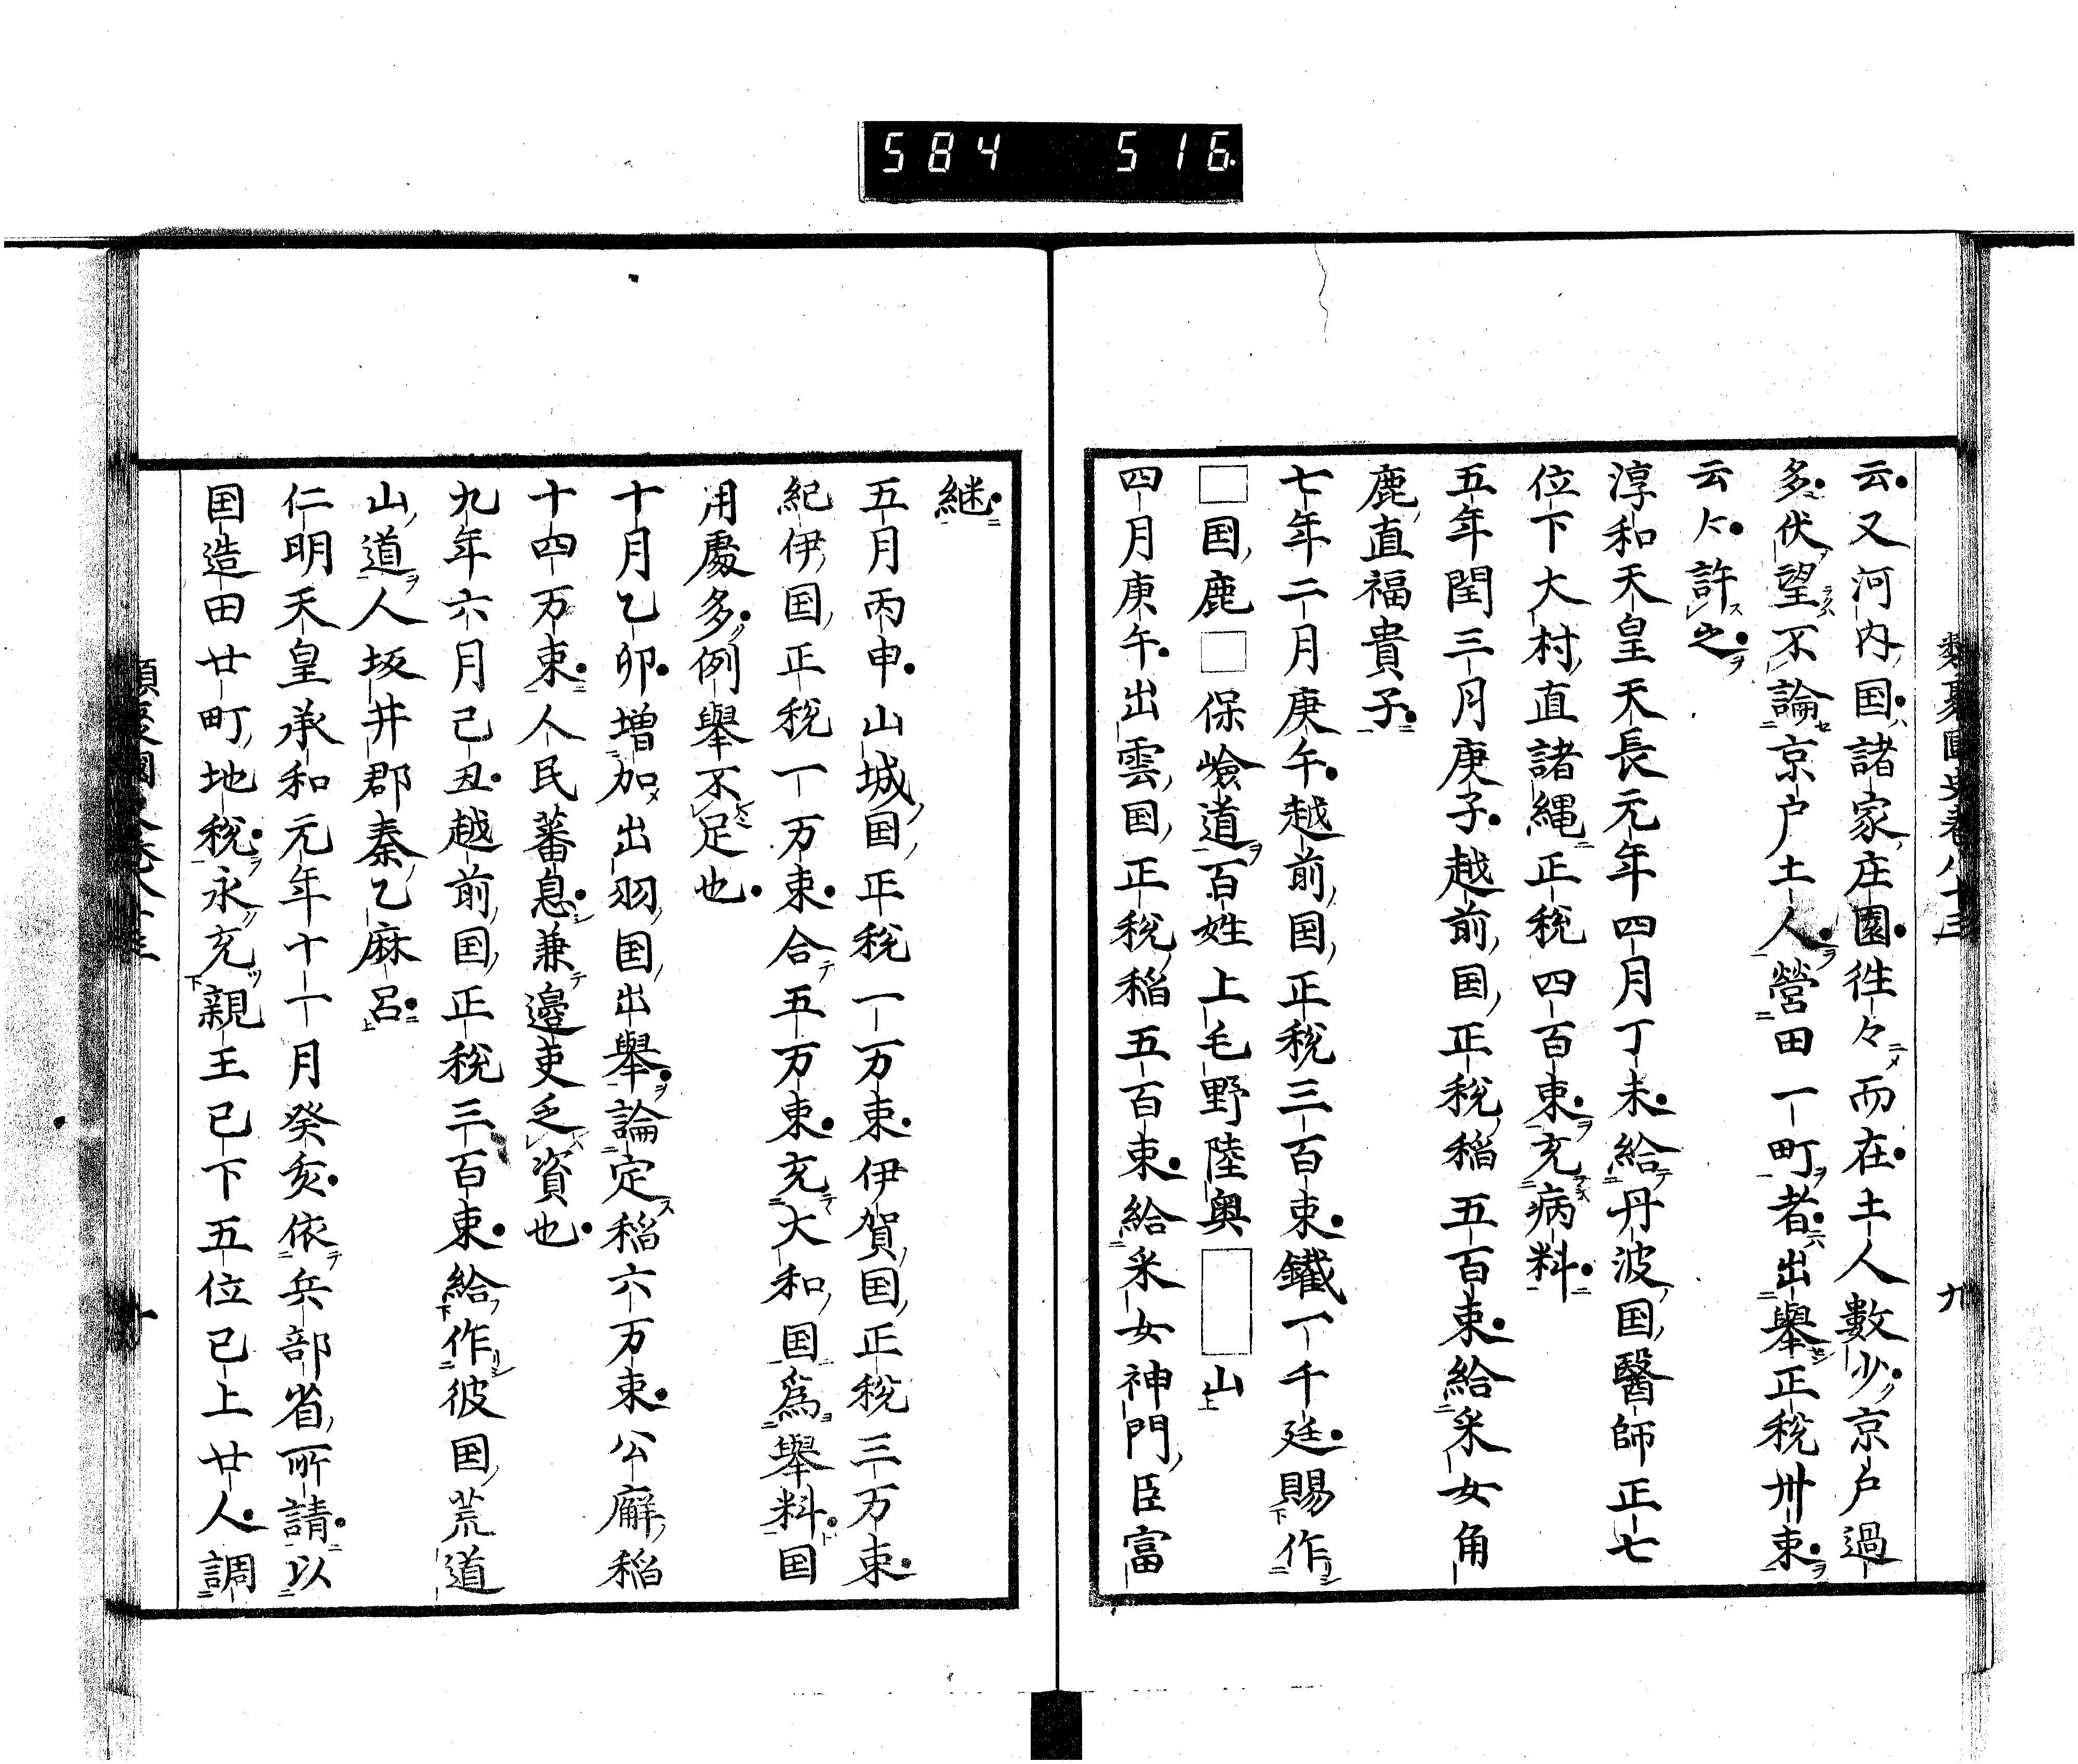 584 516
類聚國史卷八十三 九
云又河内国諸家庄園徃々而在土人數少京戶過
多伏望不論京戶土人營田一町者出舉正稅卅束
云々許之
淳和天皇天長元年四月丁未給丹波国醫師正七
位下大村直諸縄正稅四百束充病料
五年閏三月庚子越前国正稅稲五百束給采女角
鹿直福貴子
七年二月庚午越前国正稅三百束鐵一千廷賜作
□国鹿□保嶮道百姓上毛野陸奥□山
四月庚午出雲国正稅稲五百束給采女神門臣富
継
五月丙申山城国正稅一万束伊賀国正稅三万束
紀伊国正稅一万束合五万束充大和国為舉料国
用處多例舉不足也
十月乙卯増加出羽国出舉論定稲六万束公廨稲
十四万束人民蕃息兼邊吏乏資也
九年六月己丑越前国正稅三百束給作彼国荒道
山道人坂井郡秦乙麻呂
仁明天皇承和元年十一月癸亥依兵部省所請以
国造田廿町地稅永充親王已下五位已上廿人調